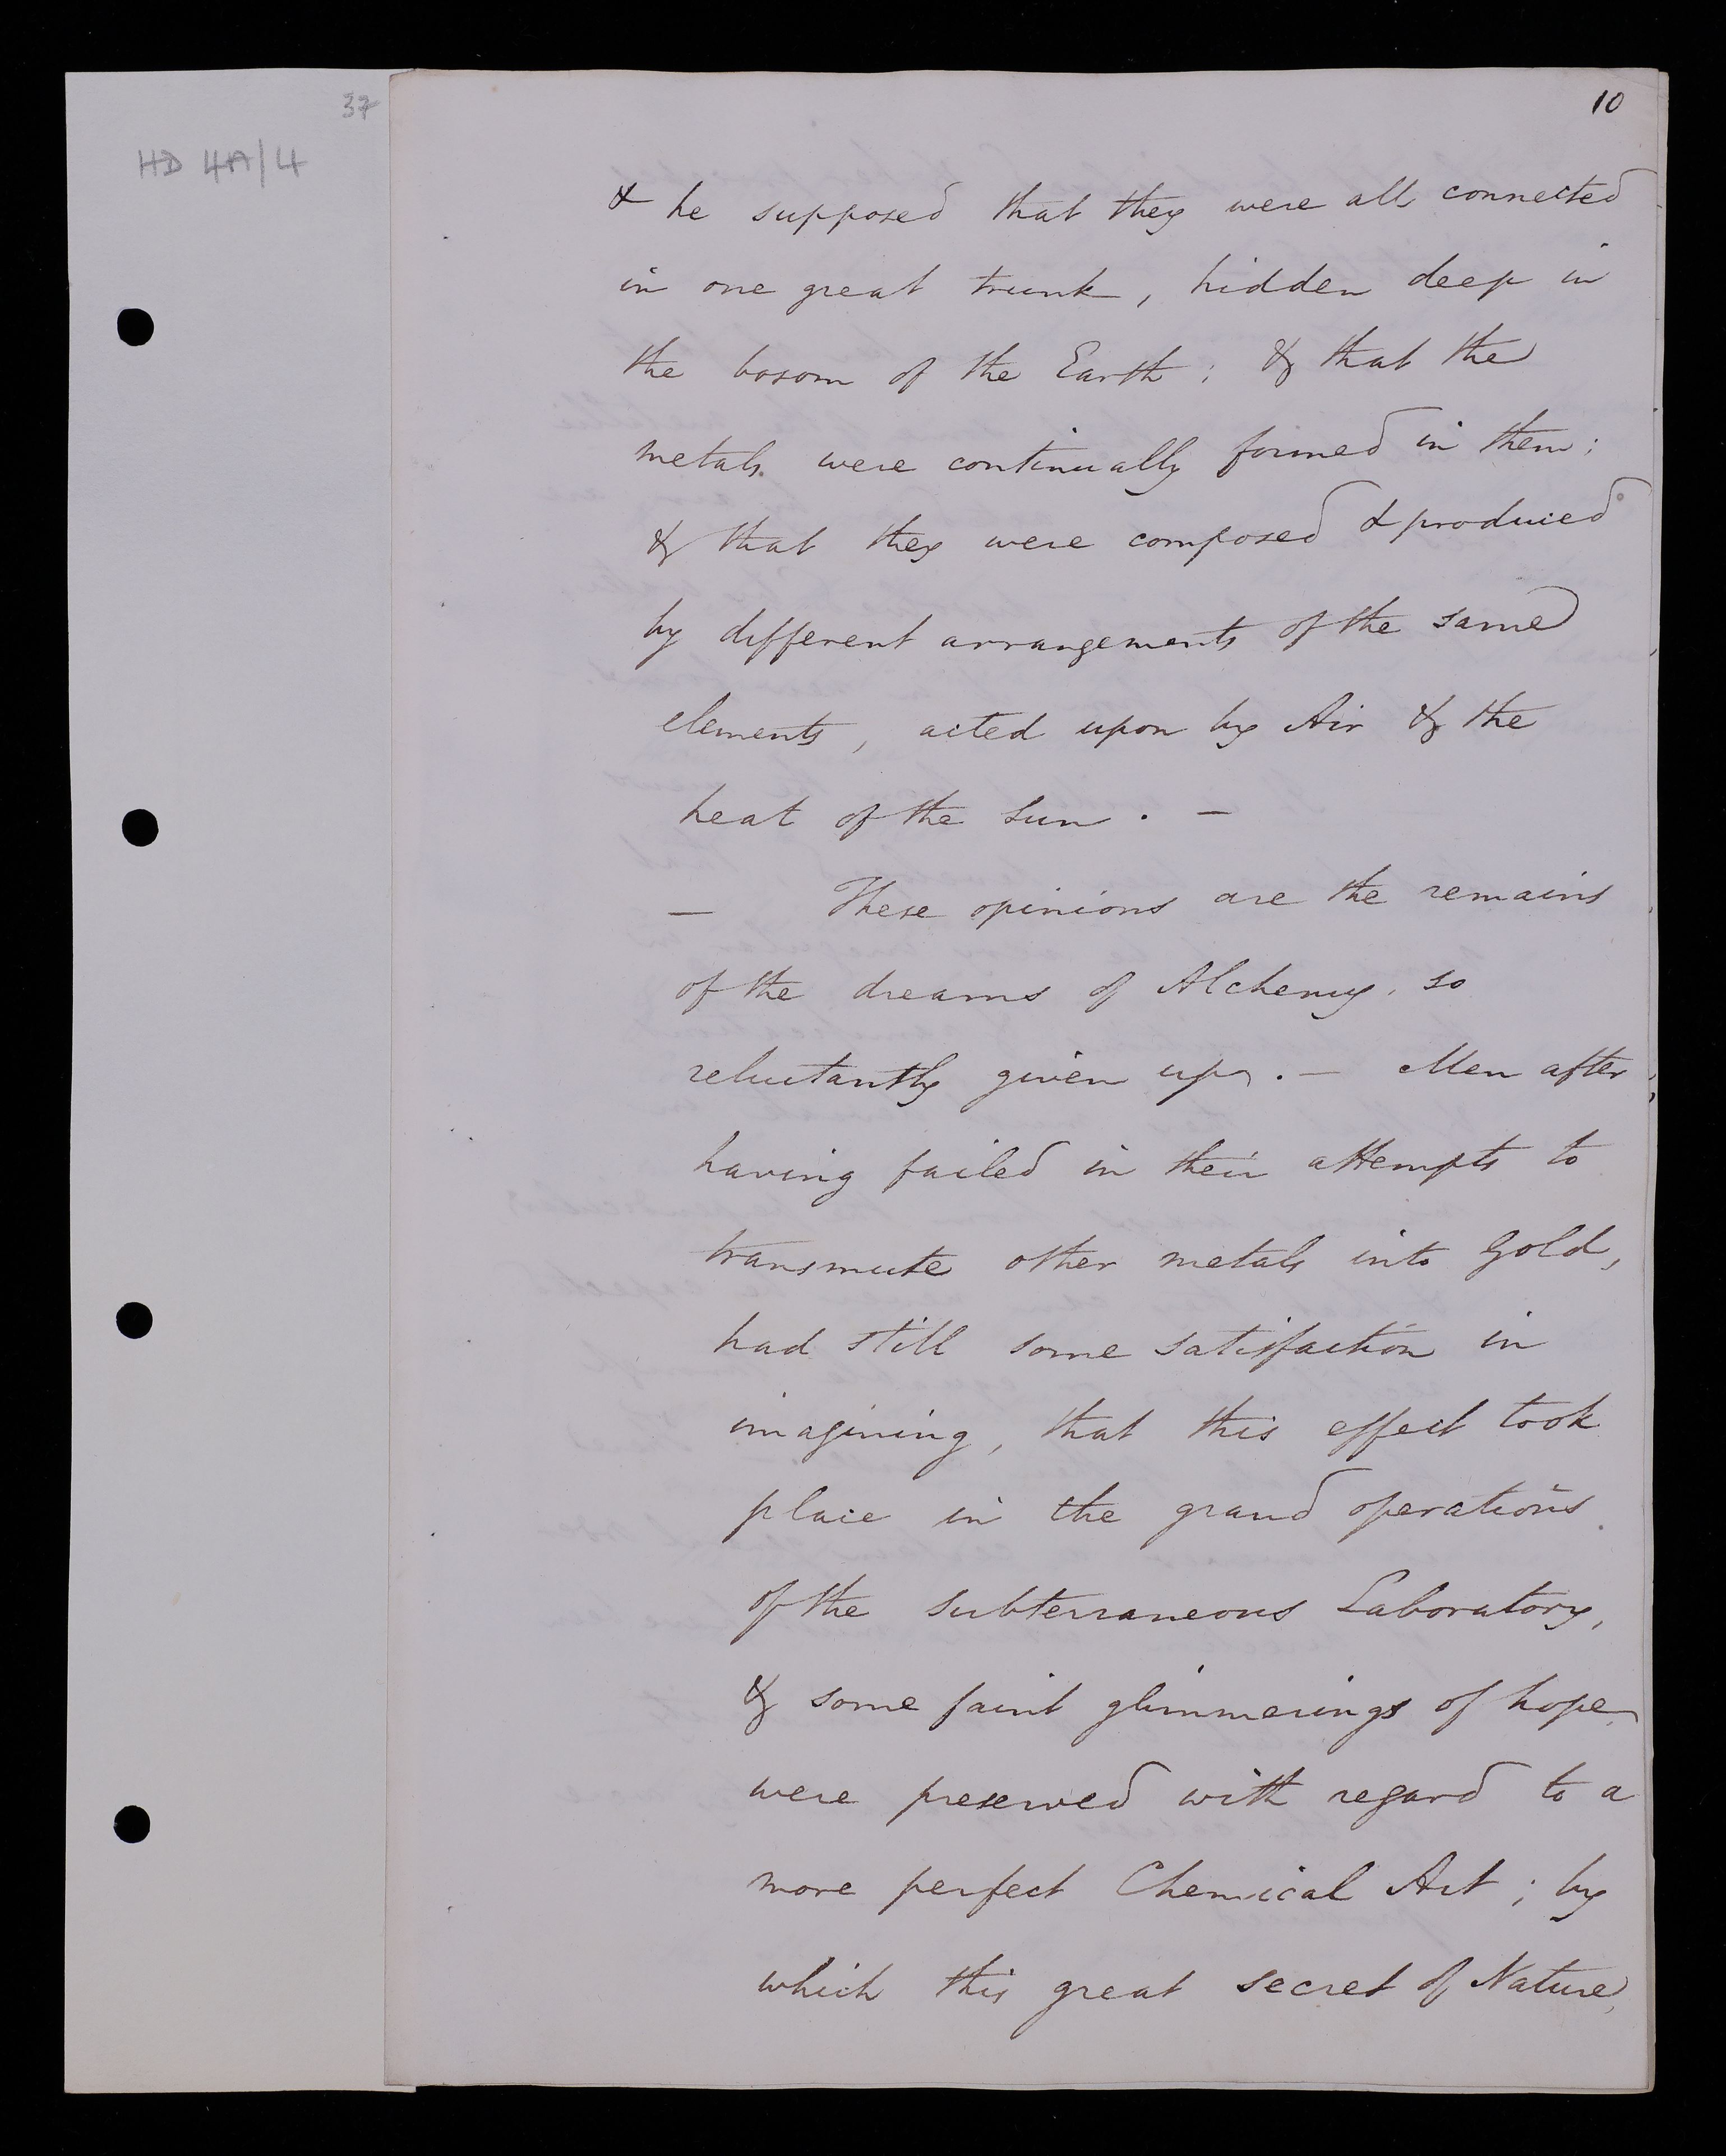 37
HD 4A/4
10
& he supposed that they were all connected
in one great trunk, hidden deep in
the bosom of the Earth; & that the
metals were continually formed in them;
& that they were composed & produced
by different arrangements of the same
elements, acted upon by Air & the
heat of the sun. –
– These opinions are the remains
of the dreams of Alchemy, so
reluctantly given up. – Men after
having failed in their attempts to
transmute other metals into Gold,
had still some satisfaction in
imagining, that this effect took
place in the grand operations
of the subterraneous Laboratory,
& some faint glimmerings of hope
were preserved with regard to a
more perfect Chemical Art; by
which this great secret of Nature,